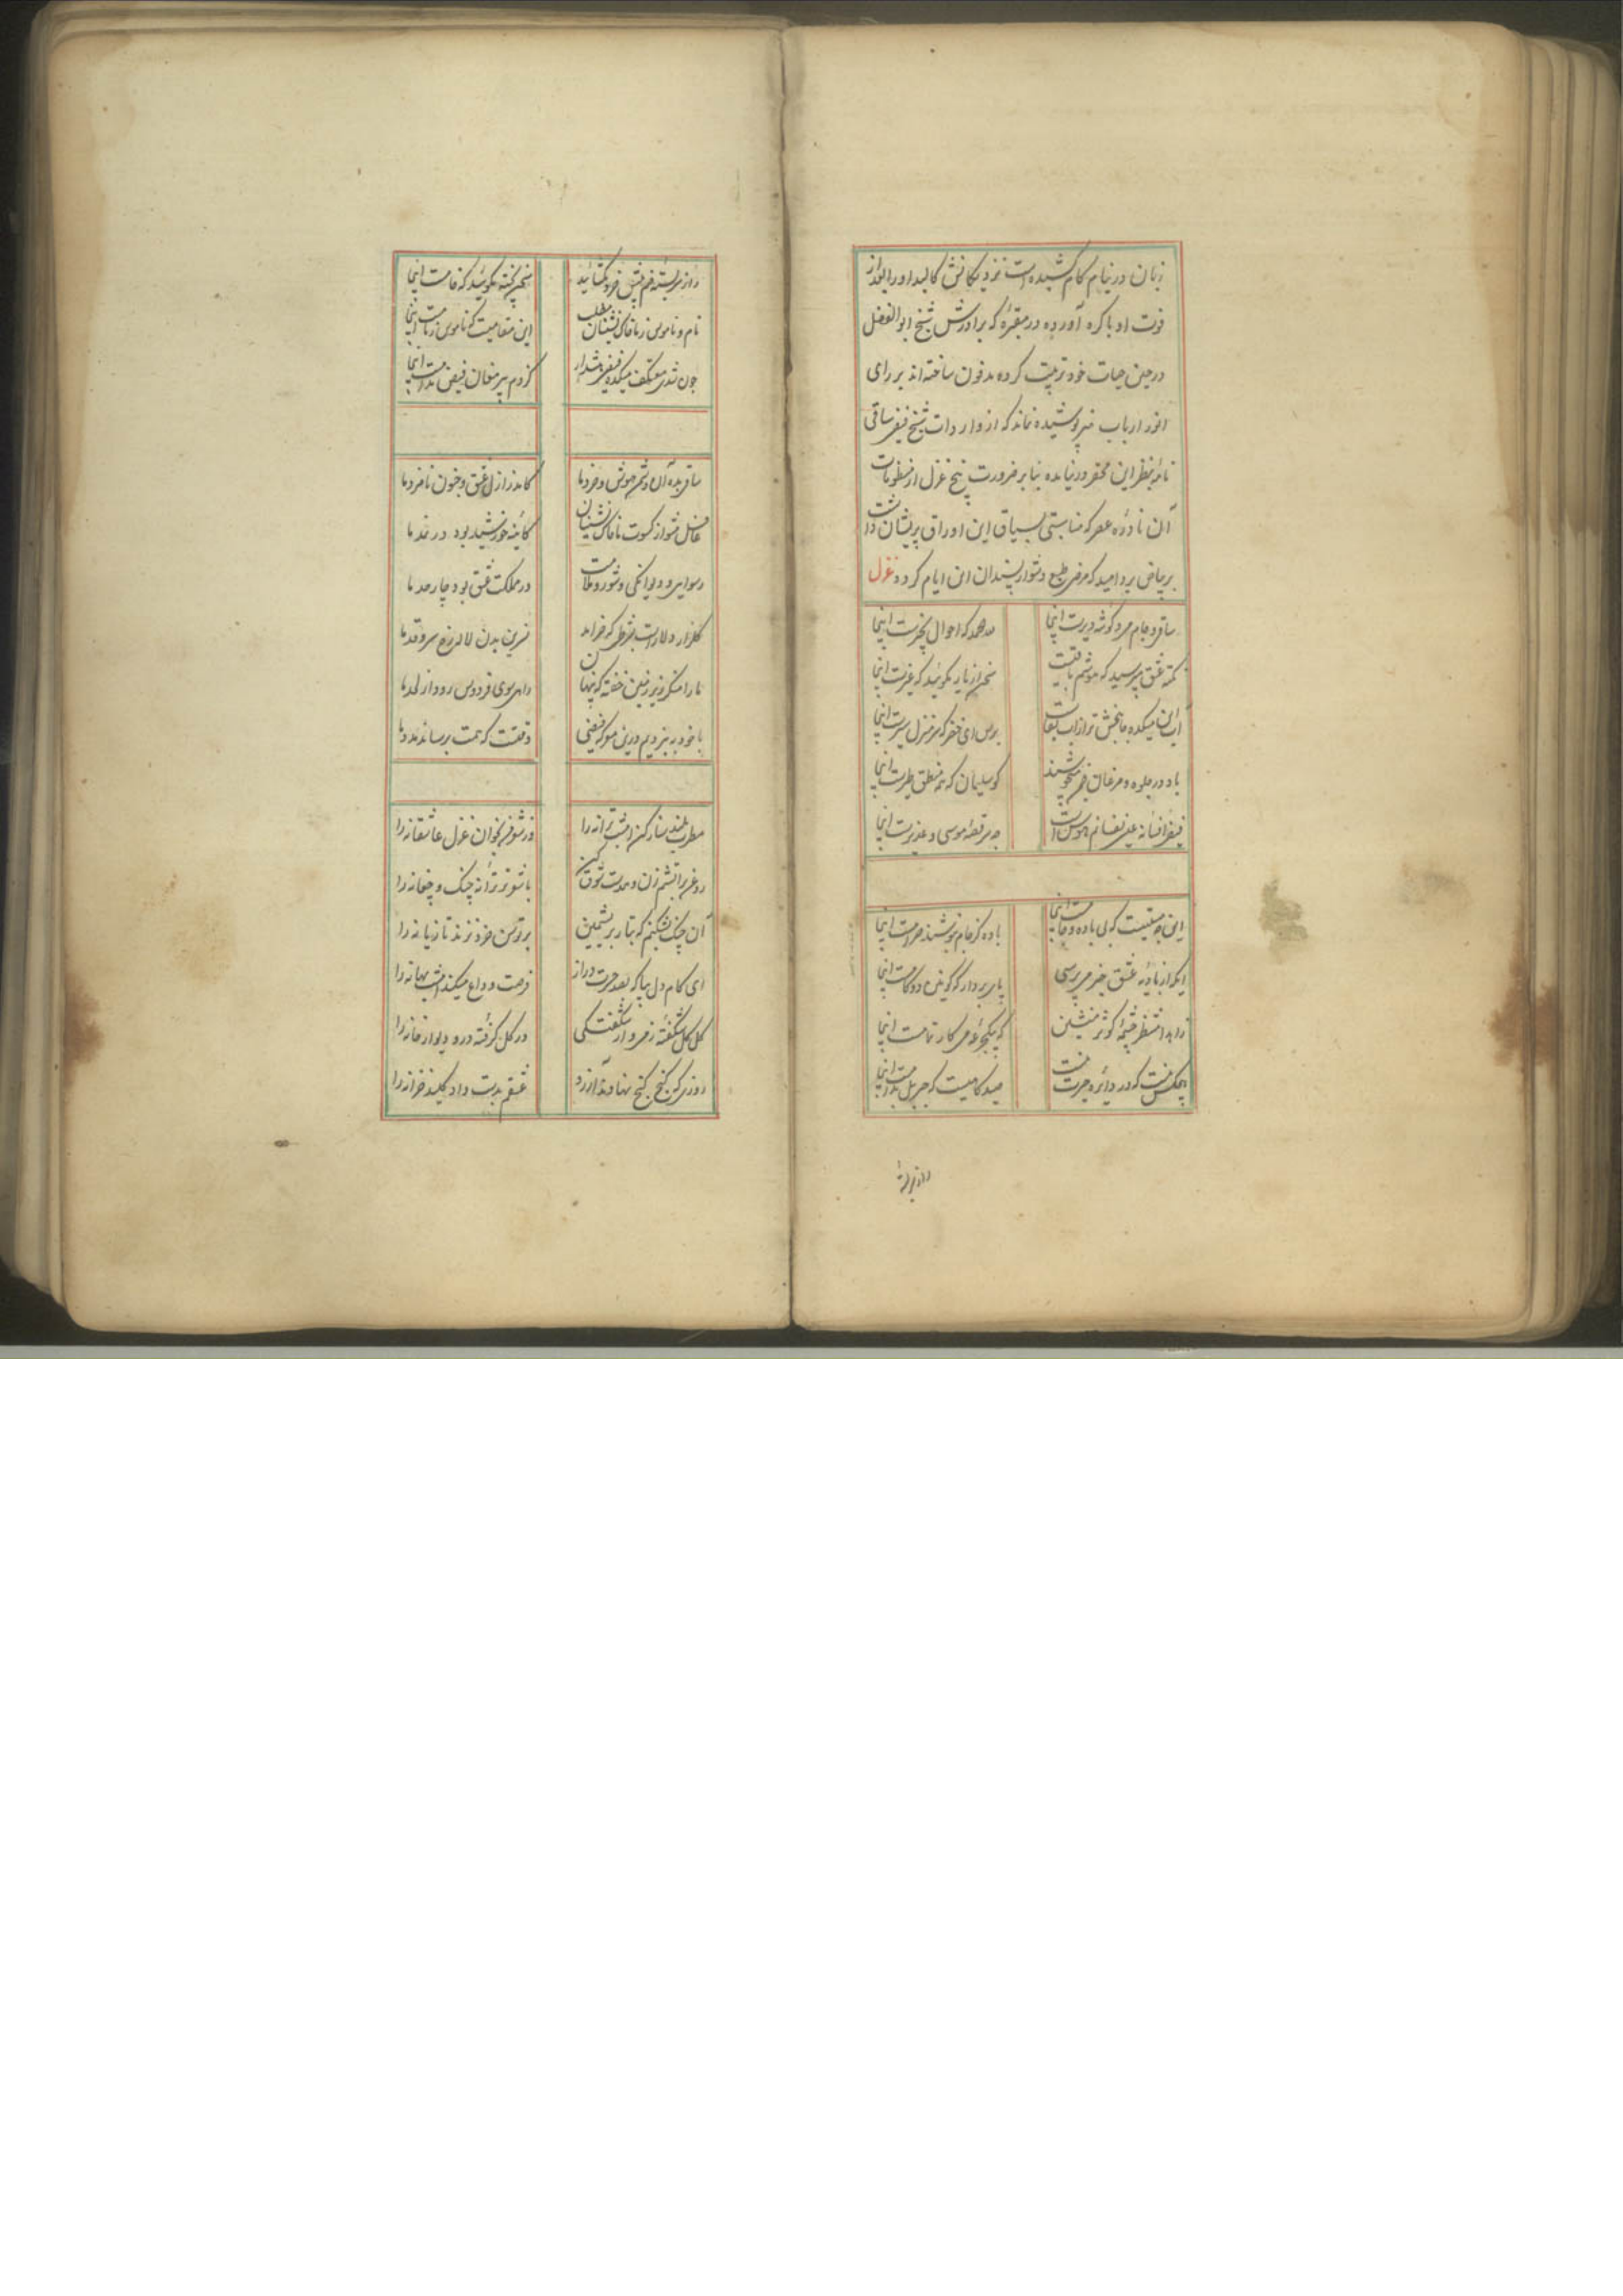 زبان در نیام کام کشیده است نزدیکانش کالبد او را بعد از
فوت او باگره آورده در مقبرهٔ که برادرش شیخ ابوالفضل
در حین حیات خود ترتیب کرده مدفون ساخته‌اند بر رای
انور ارباب پوشیده نماند که از واردات شیخ فیضی ساقی
نامه بنظر این محقر در نیامده بنا بر ضرورت پنج غزل از منظومات
آن نادرهٔ عصر که مناسبتی بسیاق این اوراق پریشان داشت
بر بیاض برد امید که مرضی طبع دشوار پسندان این ایام گردد غزل
ساقی و جام می و گوشهٔ دیرست اینجا
که احوال بخیرست اینجا
نکتهٔ عشق مپرسید که هوشم باقیست
سخن از یار مگوئید که غیرست اینجا
این میکده جانبخش تر از آب بقاست
برس ای خضر که سر منزل سیرست اینجا
باد در جلوه و مرغان بخروشند
کو سلیمان که همه منطق طیرست اینجا
فیضی افسانهٔ
چه سر قصهٔ موسی و عزیرست اینجا
این چه مستیست که بی باده و جامست اینجا
باده کز جام بنوشند حرامست اینجا
ایکه از بادیهٔ عشق خبر می پرسی
پای بردار که کونین دو گامست اینجا
زاهدا منتظر چشمهٔ کوثر منشین
که بیکجرعهٔ می کار تمامست اینجا
هیچکس نیست که در دایرهٔ حیرت نیست
صیدگاهیست که جبریل بدامست اینجا
راز سربسته
راز سربستهٔ خم پیش خرد مگشائید
سخن پخته مگوئید که خامست اینجا
نام و ناموس ز ما خاک نشینان مطلب
این مقامیست که ناموس ز نامست اینجا
چون شدی معتکف میکده فیضی هشدار
کز دم پیر مغان فیض مدامست اینجا
ساقی بده آن دشمن هوش و خرد ما
کامد ز ازل عشق و جنون نامزد ما
غافل مشو از کسوت ما خاک نشینان
کآئینهٔ خورشید بود در نمد ما
رسوایی و دیوانگی و شور و ملامت
در مملکت عشق بود چار حد ما
گلزار دلاراست بشرطی که خرامد
نسرین بدن لاله رخ سرو قد ما
ما را منگر زیر زمین خفته که پنهان
راهی سوی فردوس رود از لحد ما
با خود به نبردیم درین معرکه فیضی
وقتست که همت برساند مدد ما
مطرب بلند ساز کن امشب ترانه را
وز شوق من بخوان غزل عاشقانه را
با شور تر ترانهٔ چنگ و چغانه را
آن چنگ بشکنم که بتار بریشمین
بر توسن خرد نزند تازیانه را
ای کام دل بیا که بصد حسرت دراز
فرصت وداع میکند امشب بهانه را
گل گل شگفته
در گل گرفته در و دیوار خانه را
روزی که گنج گنج نهادند آرزو
عشقم بدست داد کلید خزانه را